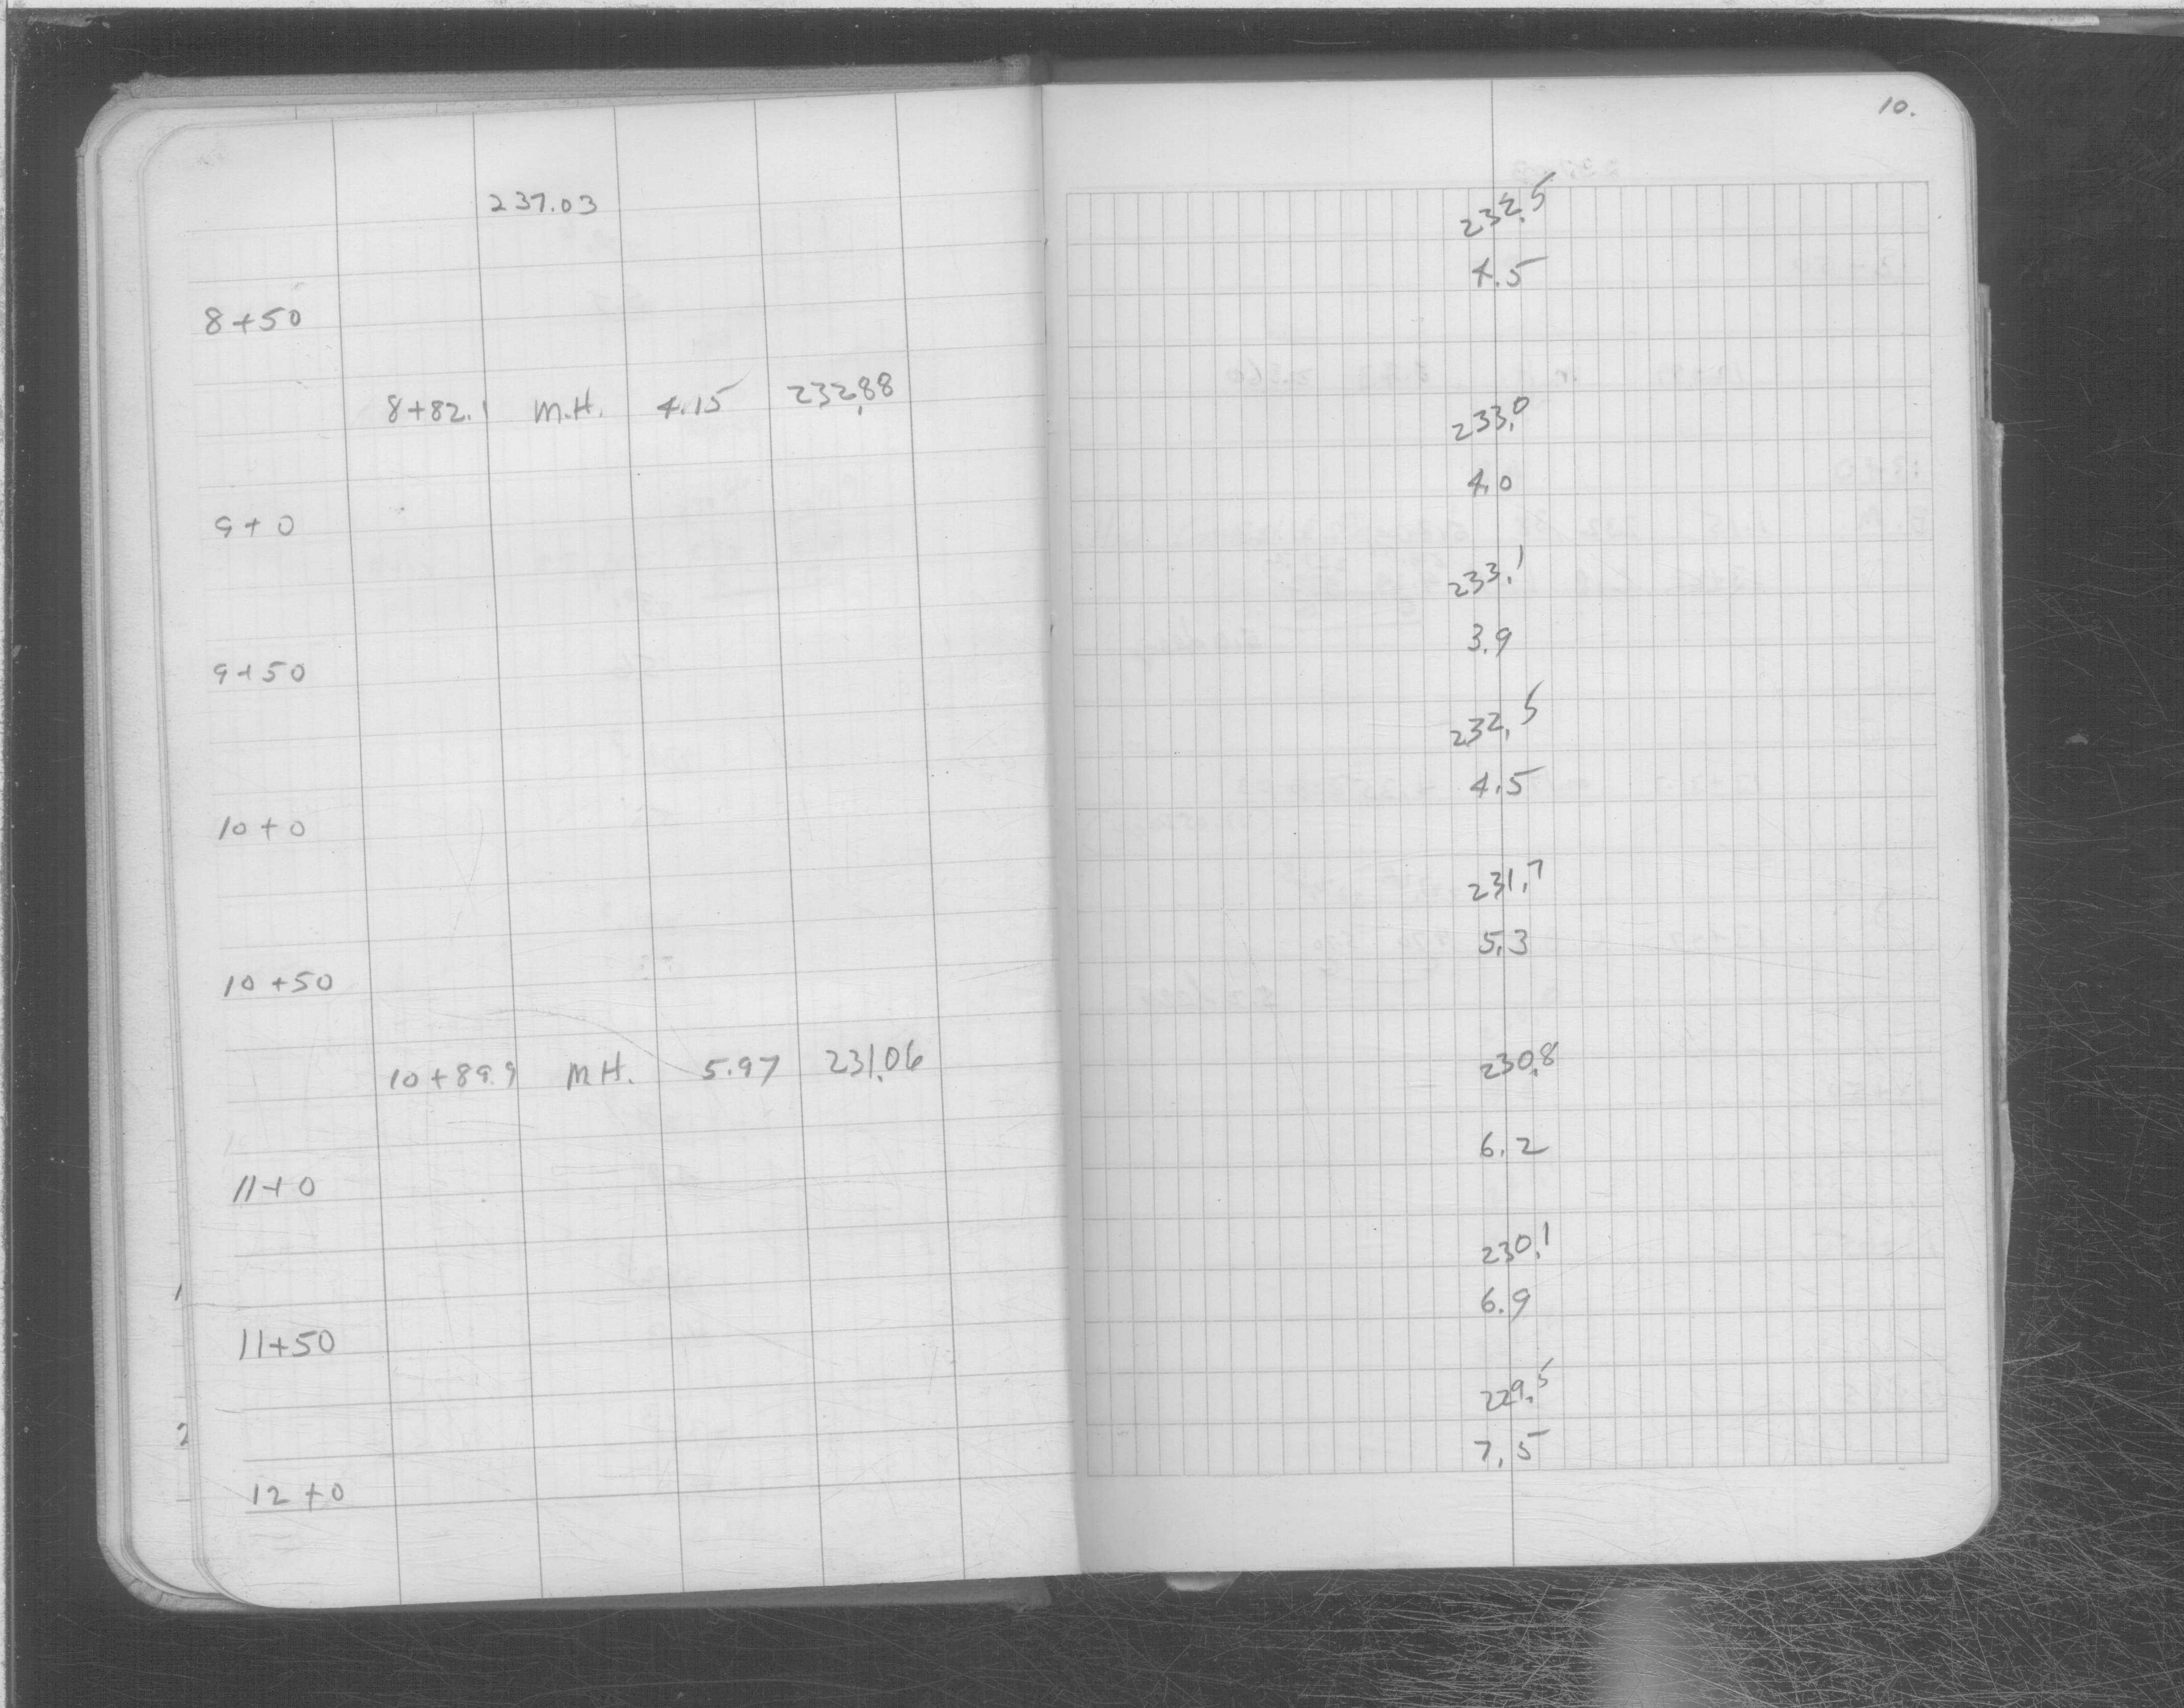 237.03
8+50
8+82.1 M.H. 4.15 232.88
9+0
9+50
10+0
10+50
10+89.9 M.H. 5.97 231.06
11+0
11+50
12+0
10.
232.5
4.5
233.0
4.0
233.1
3.9
232.5
4.5
231.7
5.3
230.8
6.2
230.1
6.9
229.5
7.5